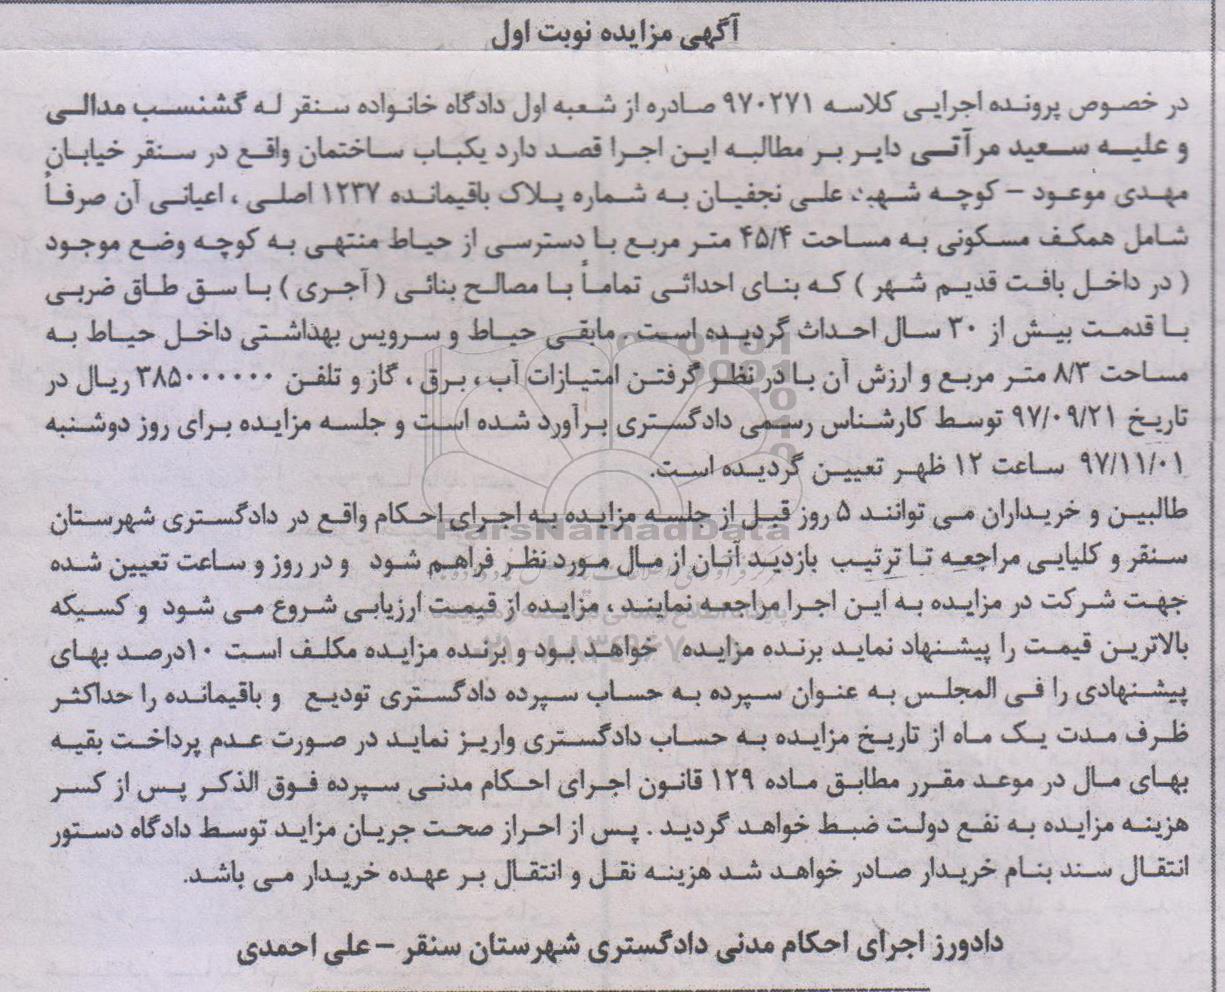 آگهی مزایده نوبت اول
در خصوص پرونده اجرایی کلاسه ۹۷۰۲۷۱ صادره از شعبه اول دادگاه خانواده سنقر له گشنسب مدالی
و علیه سعید مرآتی دایر بر مطالبه این اجرا قصد دارد یکباب ساختمان واقع در سنقر خیابان
مهدی موعود – کوچه شهید علی نجفیان به شماره پلاک باقیمانده ۱۲۳۷ اصلی ، اعیانی آن صرفاً
شامل همکف مسکونی به مساحت ۴۵/۴ متر مربع با دسترسی از حیاط منتهی به کوچه وضع موجود
( در داخل بافت قدیم شهر ) که بنای احداثی تماماً با مصالح بنائی ( آجری ) با سق طاق ضربی
با قدمت بیش از ۳۰ سال احداث گردیده است . مابقی حیاط و سرویس بهداشتی داخل حیاط به
مساحت ۸/۳ متر مربع و ارزش آن با در نظر گرفتن امتیازات آب ، برق ، گاز و تلفن ۳۸۵۰۰۰۰۰۰ ریال در
تاریخ ۹۷/۰۹/۲۱ توسط کارشناس رسمی دادگستری برآورد شده است و جلسه مزایده برای روز دوشنبه
۹۷/۱۱/۰۱ ساعت ۱۲ ظهر تعیین گردیده است.
طالبین و خریداران می توانند ۵ روز قبل از جلسه مزایده به اجرای احکام واقع در دادگستری شهرستان
سنقر و کلیایی مراجعه تا ترتیب بازدید آنان از مال مورد نظر فراهم شود و در روز و ساعت تعیین شده
جهت شرکت در مزایده به این اجرا مراجعه نمایند ، مزایده از قیمت ارزیابی شروع می شود و کسیکه
بالاترین قیمت را پیشنهاد نماید برنده مزایده خواهد بود و برنده مزایده مکلف است ۱۰درصد بهای
پیشنهادی را فی المجلس به عنوان سپرده به حساب سپرده دادگستری تودیع و باقیمانده را حداکثر
ظرف مدت یک ماه از تاریخ مزایده به حساب دادگستری واریز نماید در صورت عدم پرداخت بقیه
بهای مال در موعد مقرر مطابق ماده ۱۲۹ قانون اجرای احکام مدنی سپرده فوق الذکر پس از کسر
هزینه مزایده به نفع دولت ضبط خواهد گردید . پس از احراز صحت جریان مزاید توسط دادگاه دستور
انتقال سند بنام خریدار صادر خواهد شد هزینه نقل و انتقال بر عهده خریدار می باشد.
دادورز اجرای احکام مدنی دادگستری شهرستان سنقر – علی احمدی
ParsNamadData